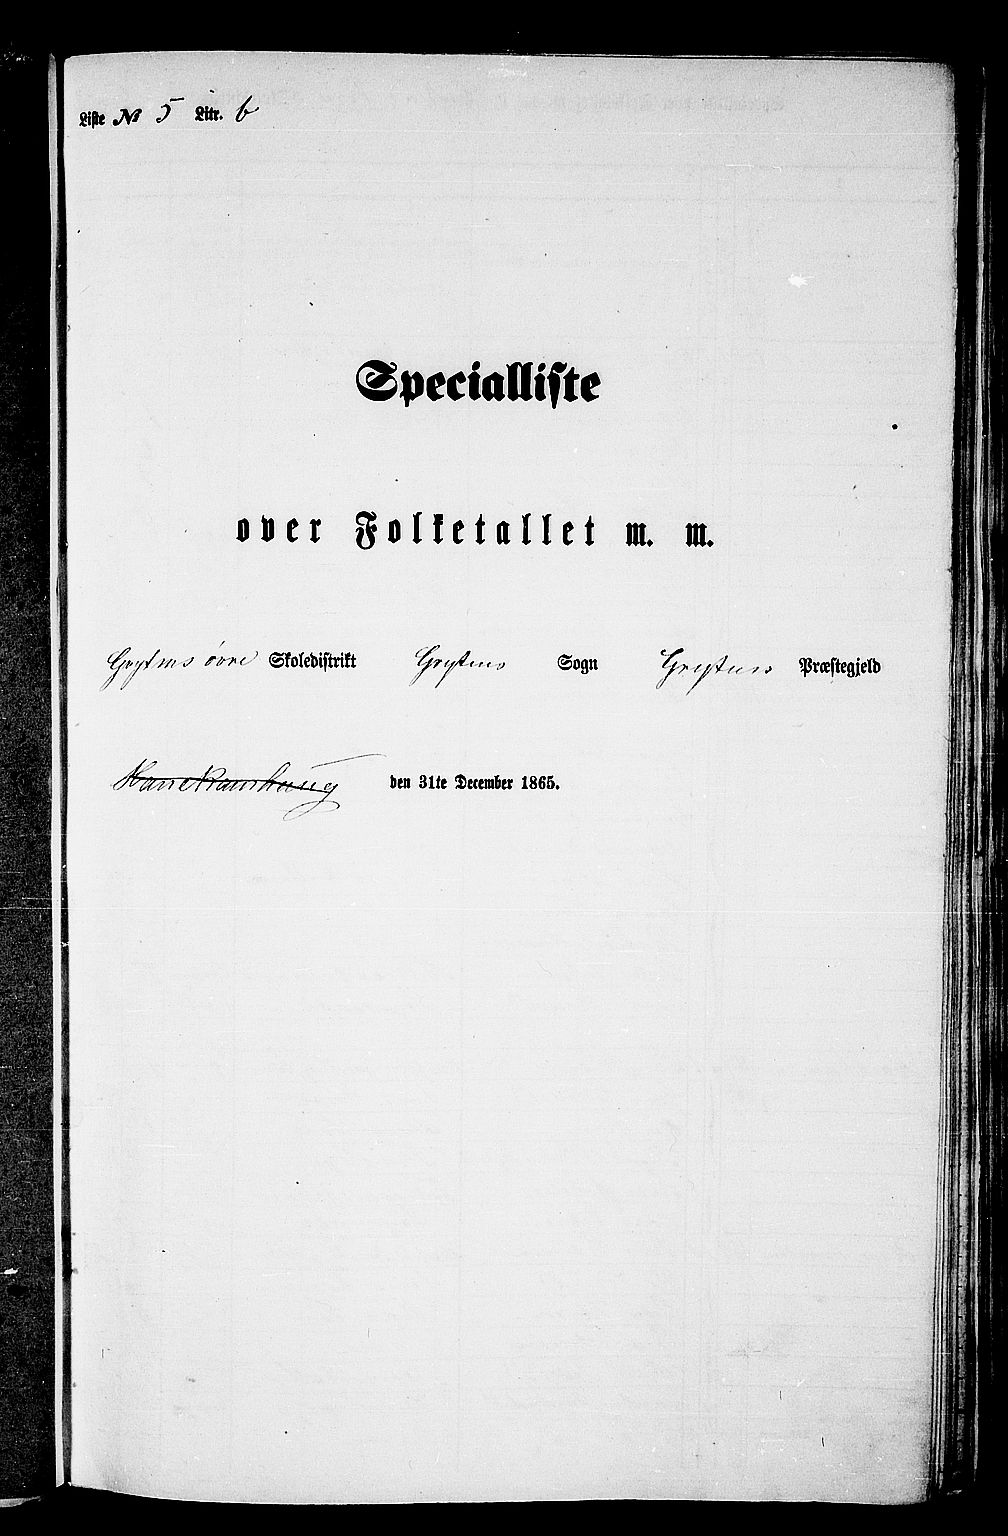 Liste № 5 Litr. b
Specialliste
over Folketallet m. m.
Grytens övre Skoledistrikt Grytens Sogn Grytens Præstegjeld
den 31te December 1865.